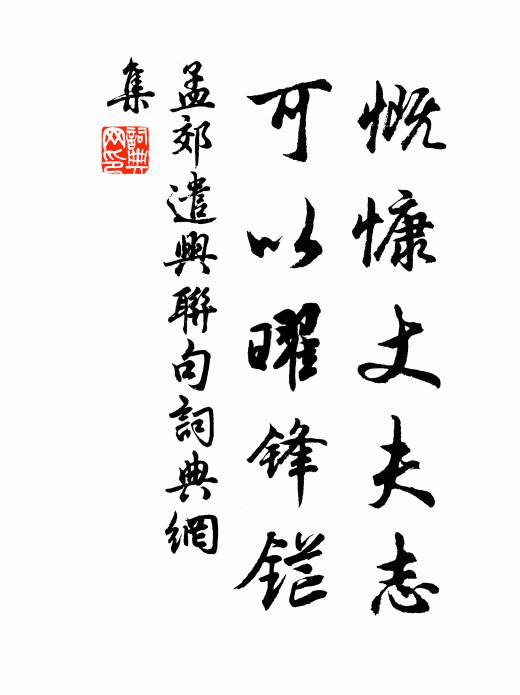 慨慷丈夫志
可以曜鋒鋩
孟郊遣興聯句詞典網
集
詞典
网印